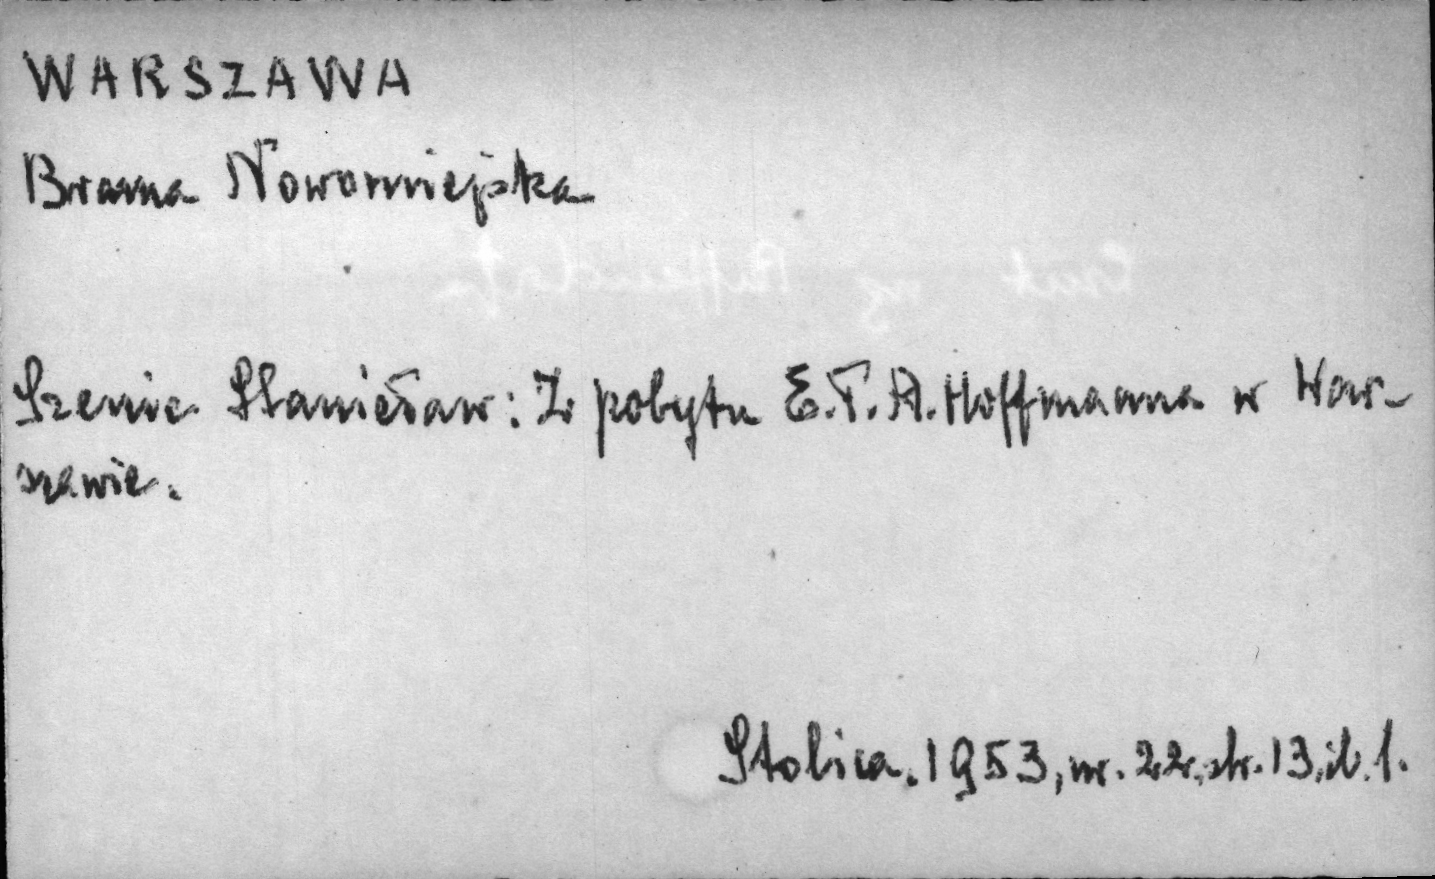 WARSZAWA
Brama Nowomiejska
Szenic Stanisław: Z pobytu E.T.A. Hoffmanna w War-
szawie.
Stolica. 1953, nr. 22, str. 13, il. 1.